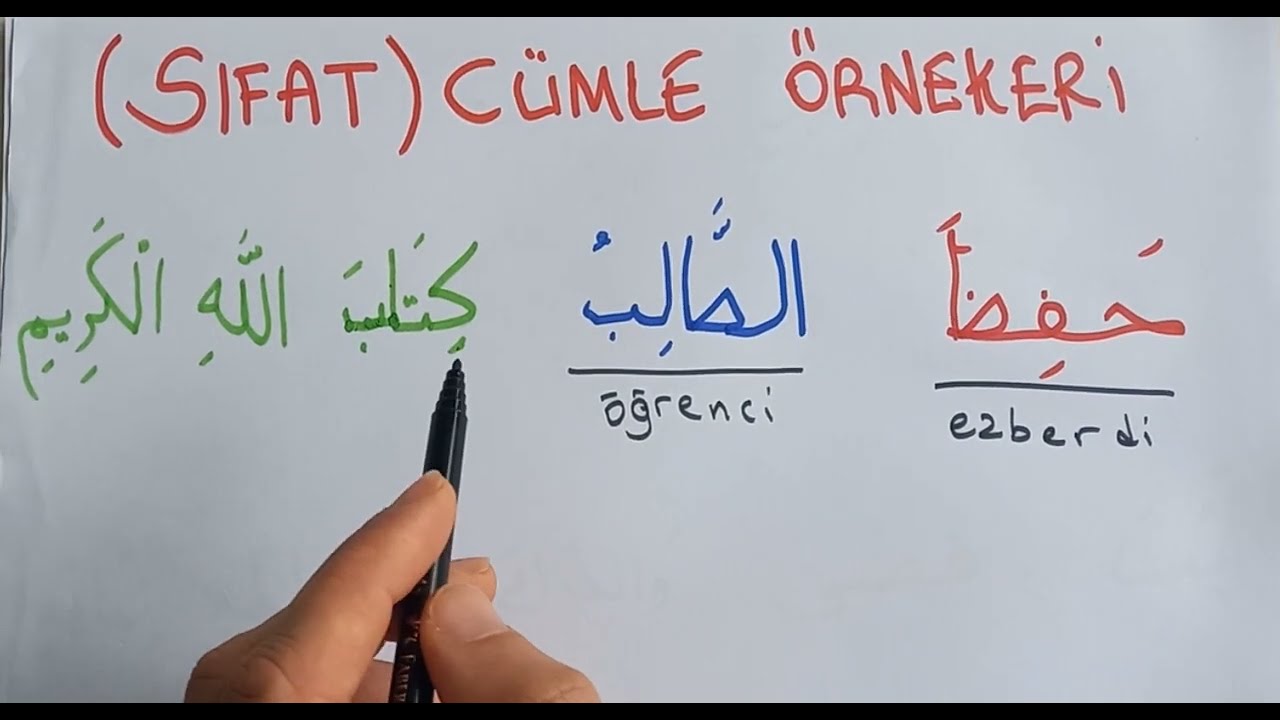 (SIFAT) CÜMLE ÖRNEKERİ
حَفِظَ الطَّالِبُ كِتَابَ اللَّهِ الْكَرِيمِ
öğrenci ezberdi